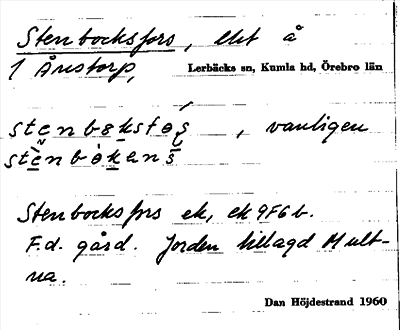 Stenbocksfors, ebt å
1 Årstorp,
Lerbäcks sn, Kumla hd, Örebro län
, vanligen
Stenbocksfors ek, ek 9F6b.
F.d. gård. Jorden tillagd Mult-
na.
Dan Höjdestrand 1960